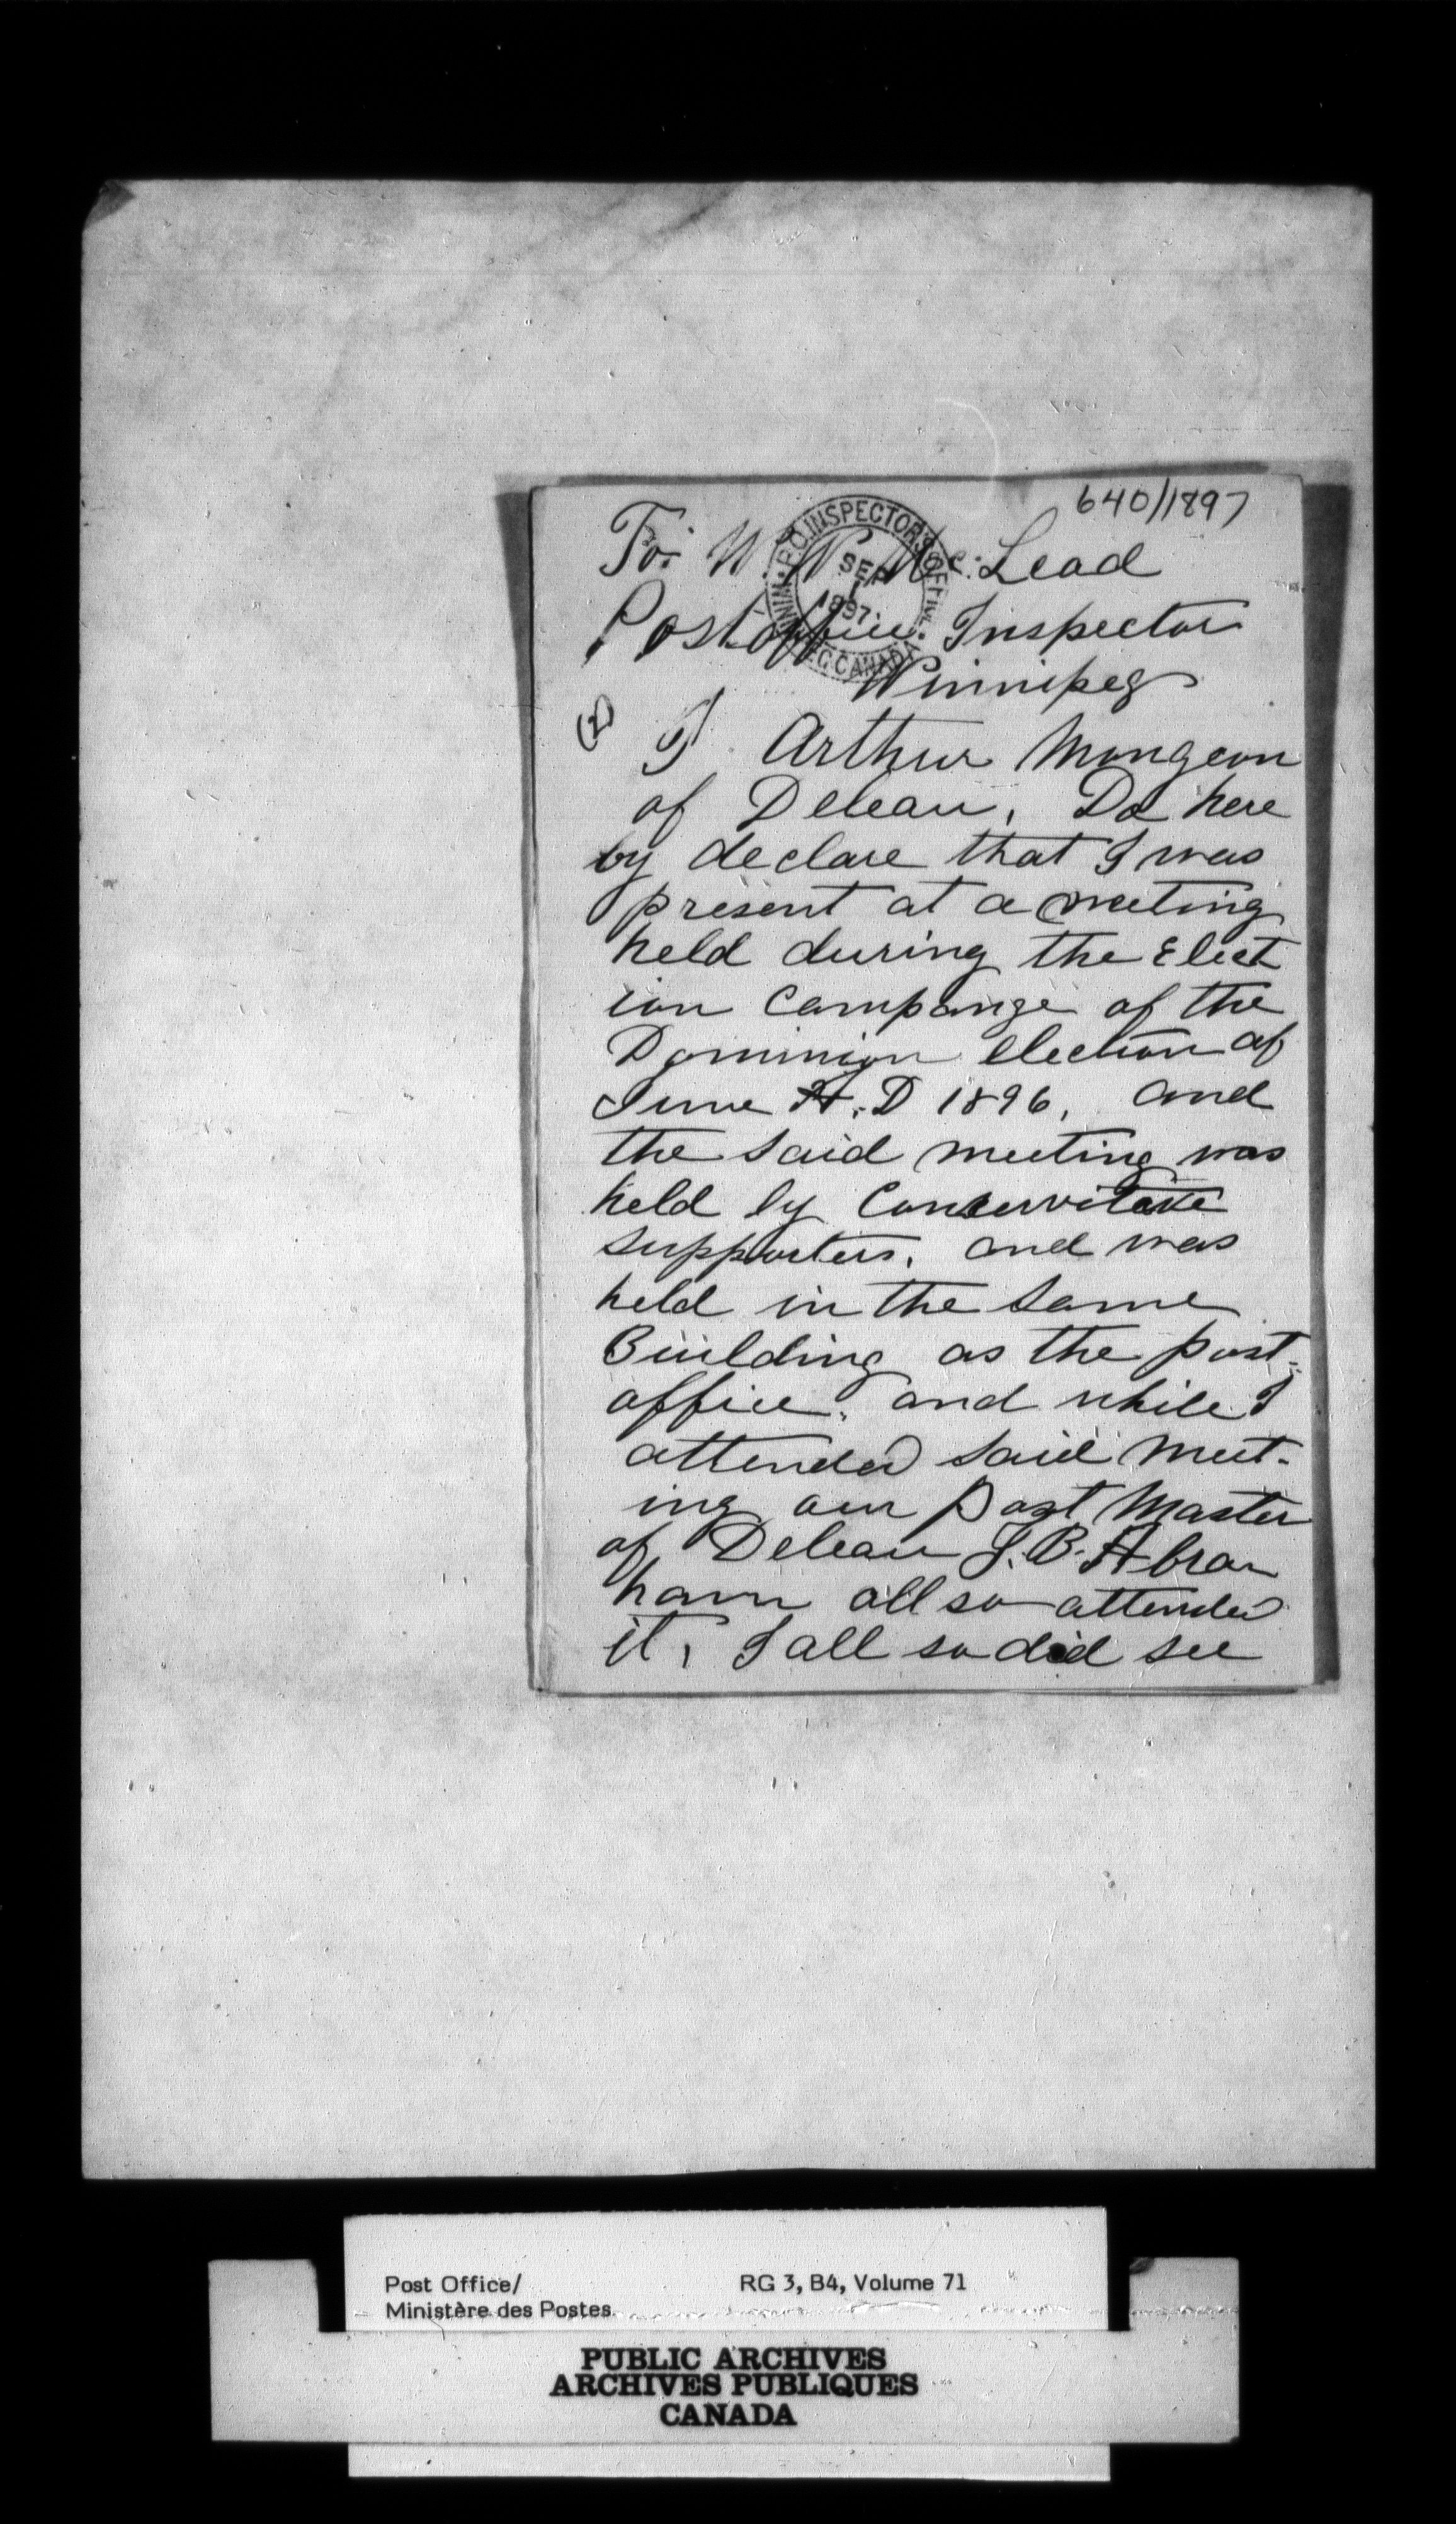 640/1897
To: W. W. Mc. Lead
Post office Inspector
Winnipeg
P.O. INSPECTOR'S OFFICE
SEP
1
1897
WINNIPEG CANADA
(2) I Arthur Mongeon
of Deleau, Do here
by declare that I was
present at a meeting
held during the Elect
ion Campange of the
Dominion election of
June A.D 1896, and
the said meeting was
held by Conservitave
supporters, and was
held in the same
Building as the post=
office, and while I
attended said meet-
ing our Post Master
of Deleau J. B. Abra
ham all so attended
it, I all so did see
Post Office/
Ministère des Postes
RG 3, B4, Volume 71
PUBLIC ARCHIVES
ARCHIVES PUBLIQUES
CANADA